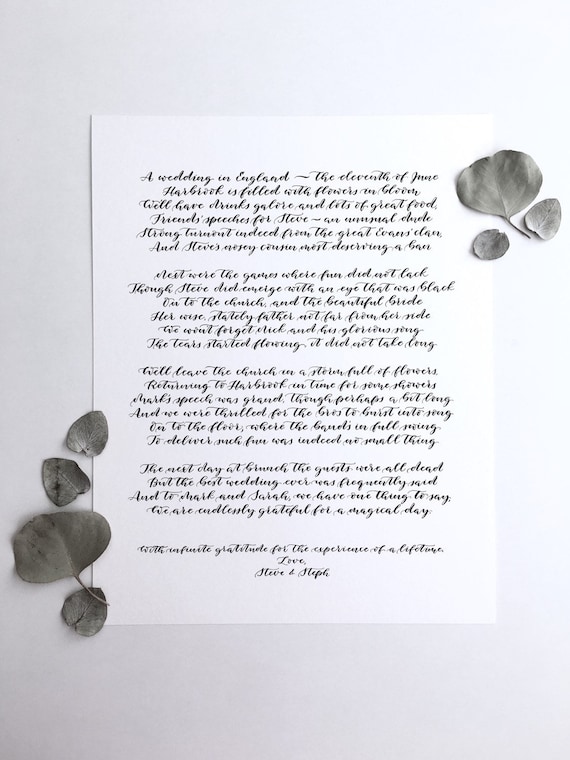 A wedding in England ~ The eleventh of June
Harbrook is filled with flowers in bloom
We'll have drinks galore and lots of great food,
Friends' speeches for Steve ~ an unusual dude
Strong turnout indeed from the great Evans' clan,
And Steve's nosey cousin most deserving a ban
Next were the games where fun did not lack
Though Steve did emerge with an eye that was black
On to the church, and the beautiful bride
Her wise, stately father not far from her side
We won't forget Rick and his glorious song
The tears started flowing, it did not take long
We'll leave the church in a storm full of flowers,
Returning to Harbrook in time for some showers
Mark's speech was grand, though perhaps a bit long
And we were thrilled for the bros to burst into song
On to the floor, where the bands in full swing
To deliver such fun was indeed no small thing
The next day at brunch the guests were all dead
But the best wedding ever was frequently said
And to Mark and Sarah, we have one thing to say,
We are endlessly grateful for a magical day.
With infinite gratitude for the experience of a lifetime.
Love,
Steve & Steph